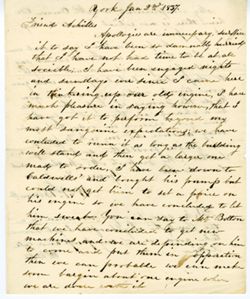 York Jan 2nd 1857.
Friend Achilles
Apologies are unnecessary, suffice
it to say I have been so darnedly hurried
that I have not had time to sit at ale
society. I have been engaged nights
and sundays ever since I came here
in tinkering up our old engine, I have
much pleasure in saying however, that I
have got it to perform beyond my
most sanguine expectations, we have
concluded to run it as long as the building
will stand and then get a large one
made to order, I have been down to
Caldwells' and bought his pump but
could not get him to set a price on
his engine so we have concluded to let
him sweat. You can say to Mr Botton
that we have concluded to get new
machines and we are depending on him
to come and put them in opperation
then we can probable we can make
some bargin about our engine when
we are done with it